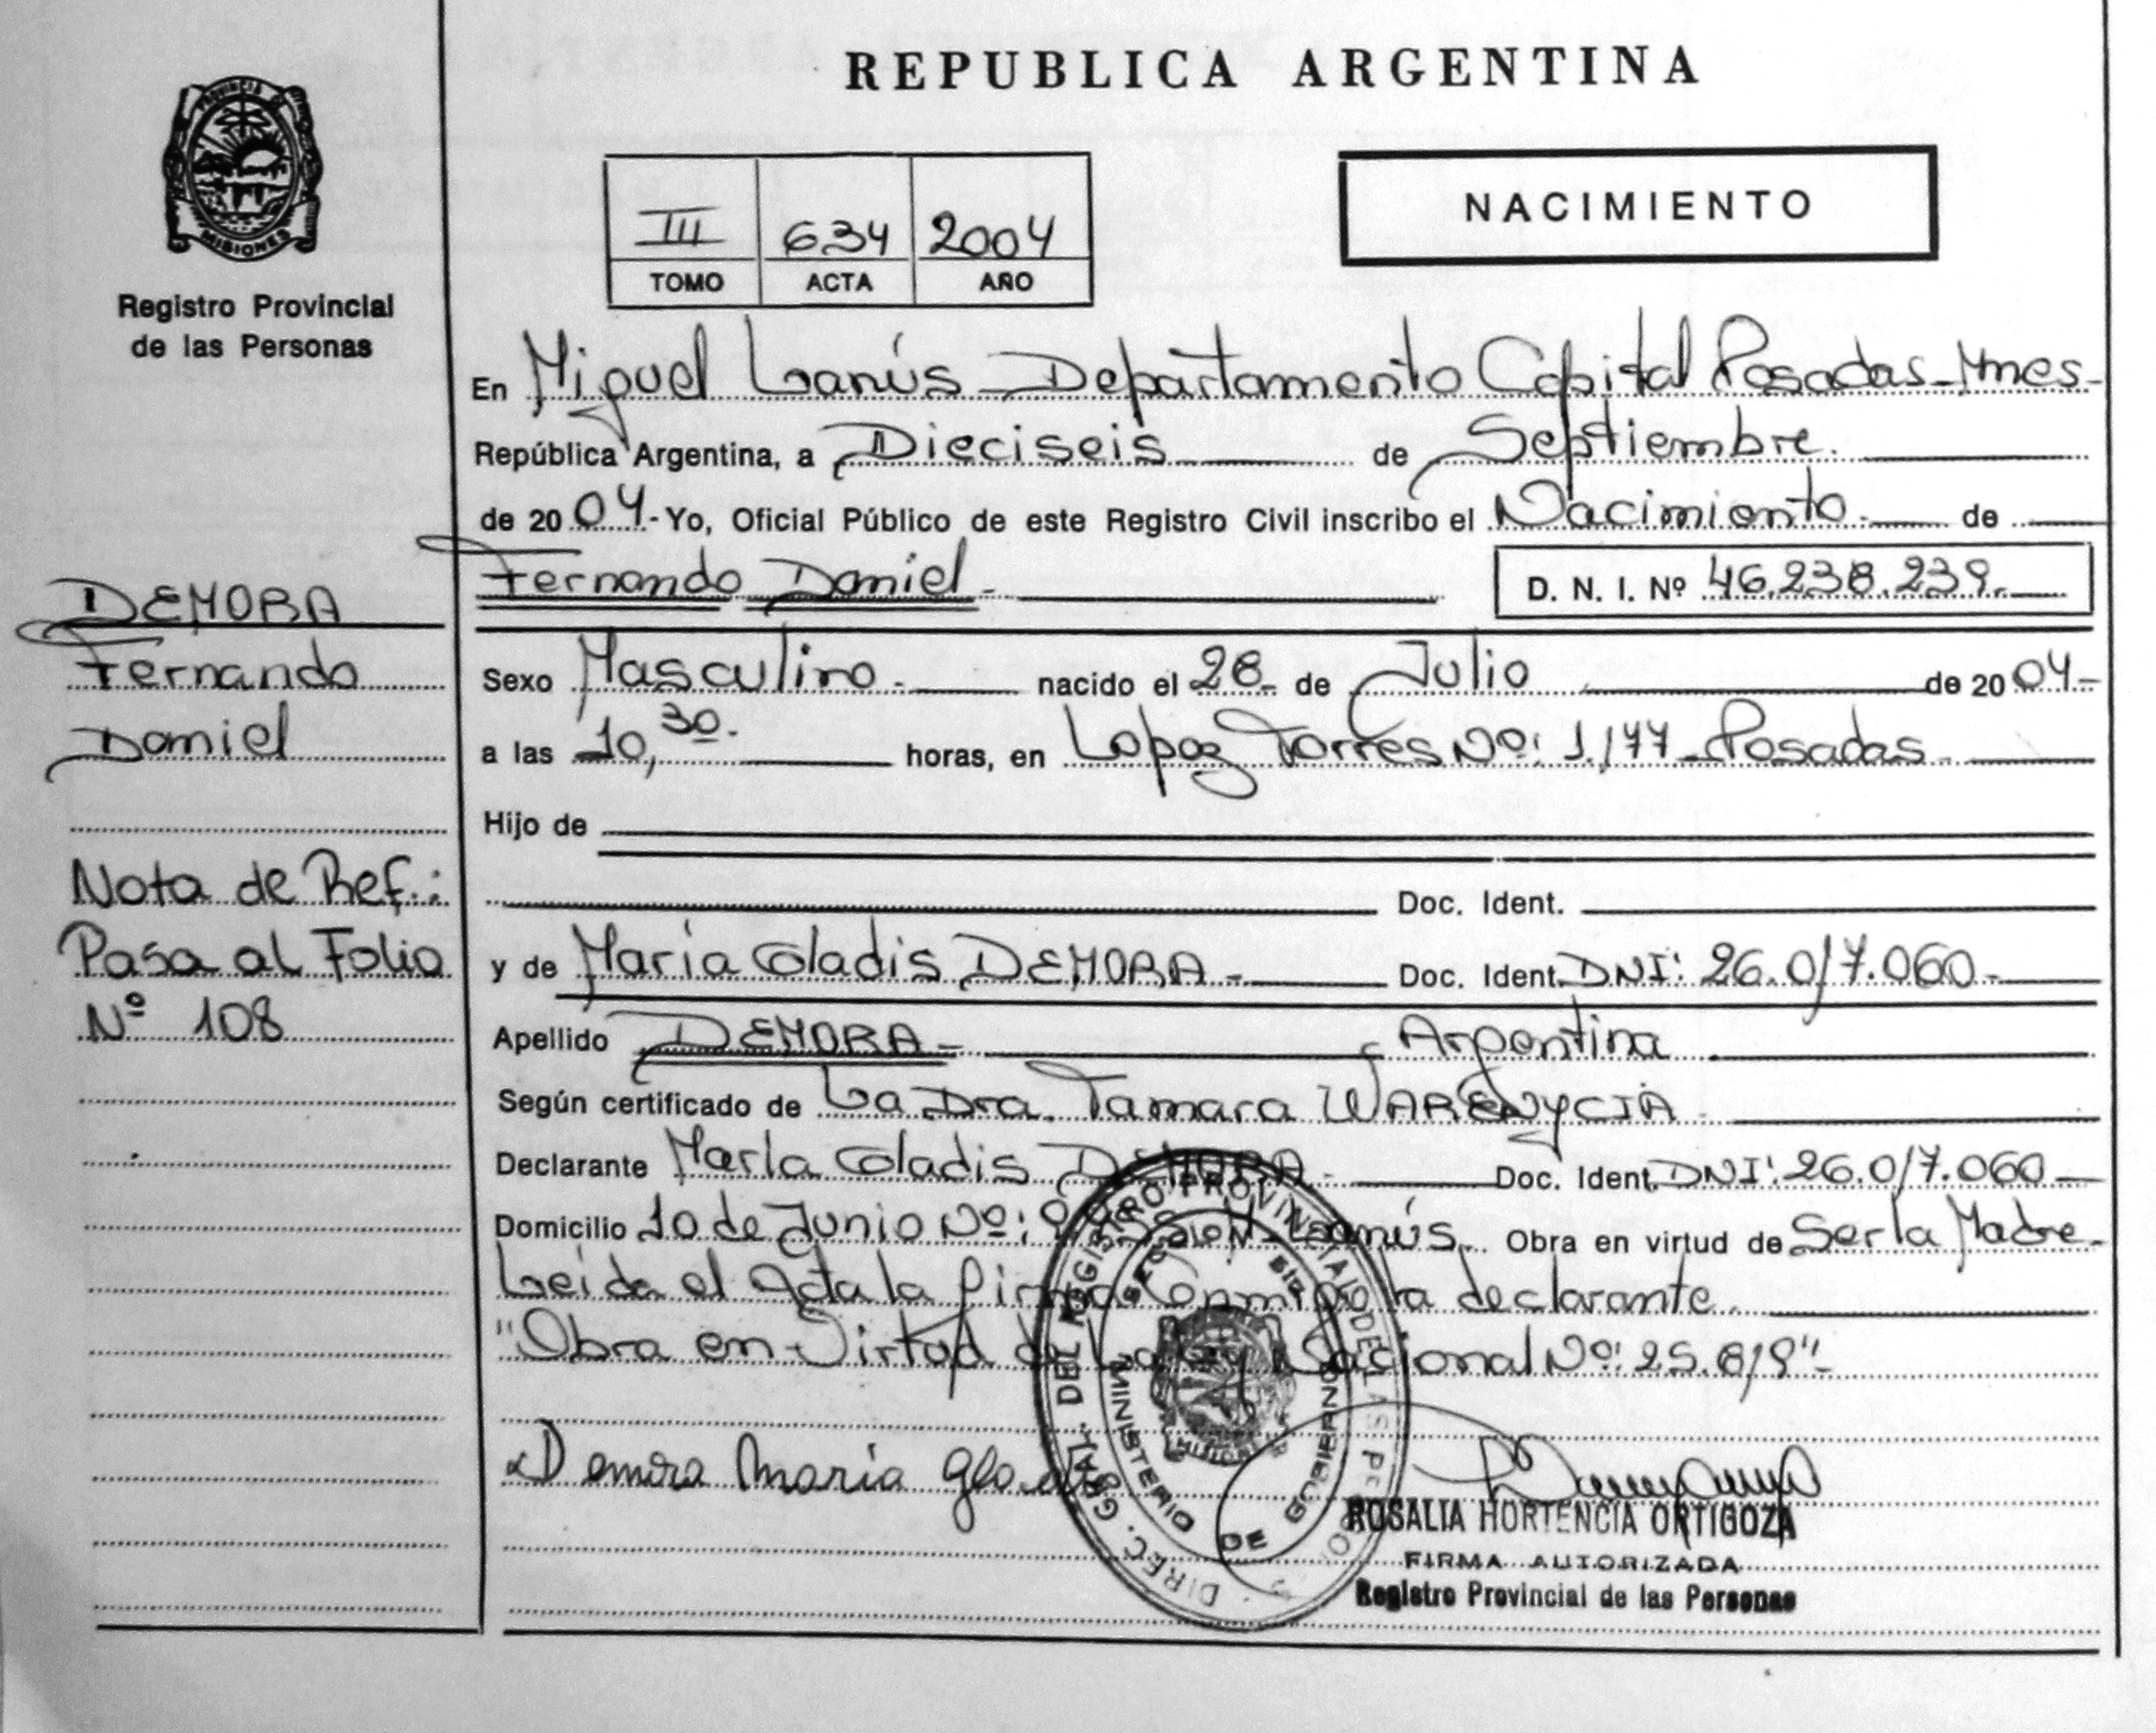 REPUBLICA ARGENTINA
PROVINCIA DE
MISIONES
Registro Provincial
de las Personas
NACIMIENTO
III 634 2004
TOMO ACTA AÑO
En Miguel Lanús Departamento Capital Posadas-Mnes-
República Argentina, a Dieciseis de Septiembre.
de 2004.- Yo, Oficial Público de este Registro Civil inscribo el Nacimiento. de
Fernando Daniel.- D. N. I. Nº 46.238.239.
DEMORA
Fernando
Daniel
Sexo Masculino.- nacido el 28- de Julio de 2004-
a las 10,30. horas, en Lopez Torres Nº: 1.177-Posadas.
Hijo de
Doc. Ident.
Nota de Ref.:
Pasa al Folio
Nº 108
y de María Gladis DEMORA.- Doc. Ident. DNI: 26.017.060-
Apellido DEMORA- Argentina
Según certificado de La Dra. Tamara WARENYCIA
Declarante María Gladis DEMORA.- Doc. Ident. DNI: 26.017.060-
Domicilio 10 de Junio Nº: Lanús. Obra en virtud de Ser la Madre.
Leida el Acta la Firma Conmigo la declarante.
"Obra en Virtud de La Ley Nacional Nº: 25.819"-
Demora María
DIREC. GRAL. DEL REGISTRO PROVINCIAL DE LAS PERSONAS
MINISTERIO DE GOBIERNO
ROSALIA HORTENCIA ORTIGOZA
FIRMA AUTORIZADA
Registro Provincial de las Personas